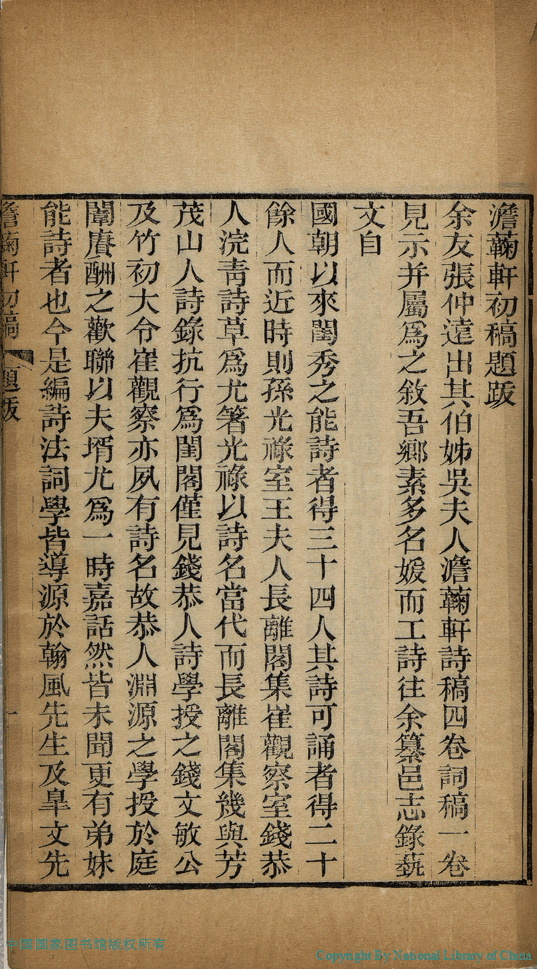 澹蘜軒初稿題跋
余友張仲遠出其伯姊吳夫人澹蘜軒詩稿四卷詞稿一卷
見示并屬爲之敘吾鄉素多名媛而工詩往余纂邑志錄蓺
文自
國朝以來閨秀之能詩者得三十四人其詩可誦者得二十
餘人而近時則孫光祿室王夫人長離閣集崔觀察室錢恭
人浣青詩草爲尤箸光祿以詩名當代而長離閣集幾與芳
茂山人詩錄抗行爲閨閣僅見錢恭人詩學授之錢文敏公
及竹初大令崔觀察亦夙有詩名故恭人淵源之學授於庭
闈賡酬之歡聯以夫壻尤爲一時嘉話然皆未聞更有弟妹
能詩者也今是編詩法詞學皆導源於翰風先生及皐文先
澹蘜軒初稿 題跋 一
中國國家图书馆版权所有
Copyright By National Library of China